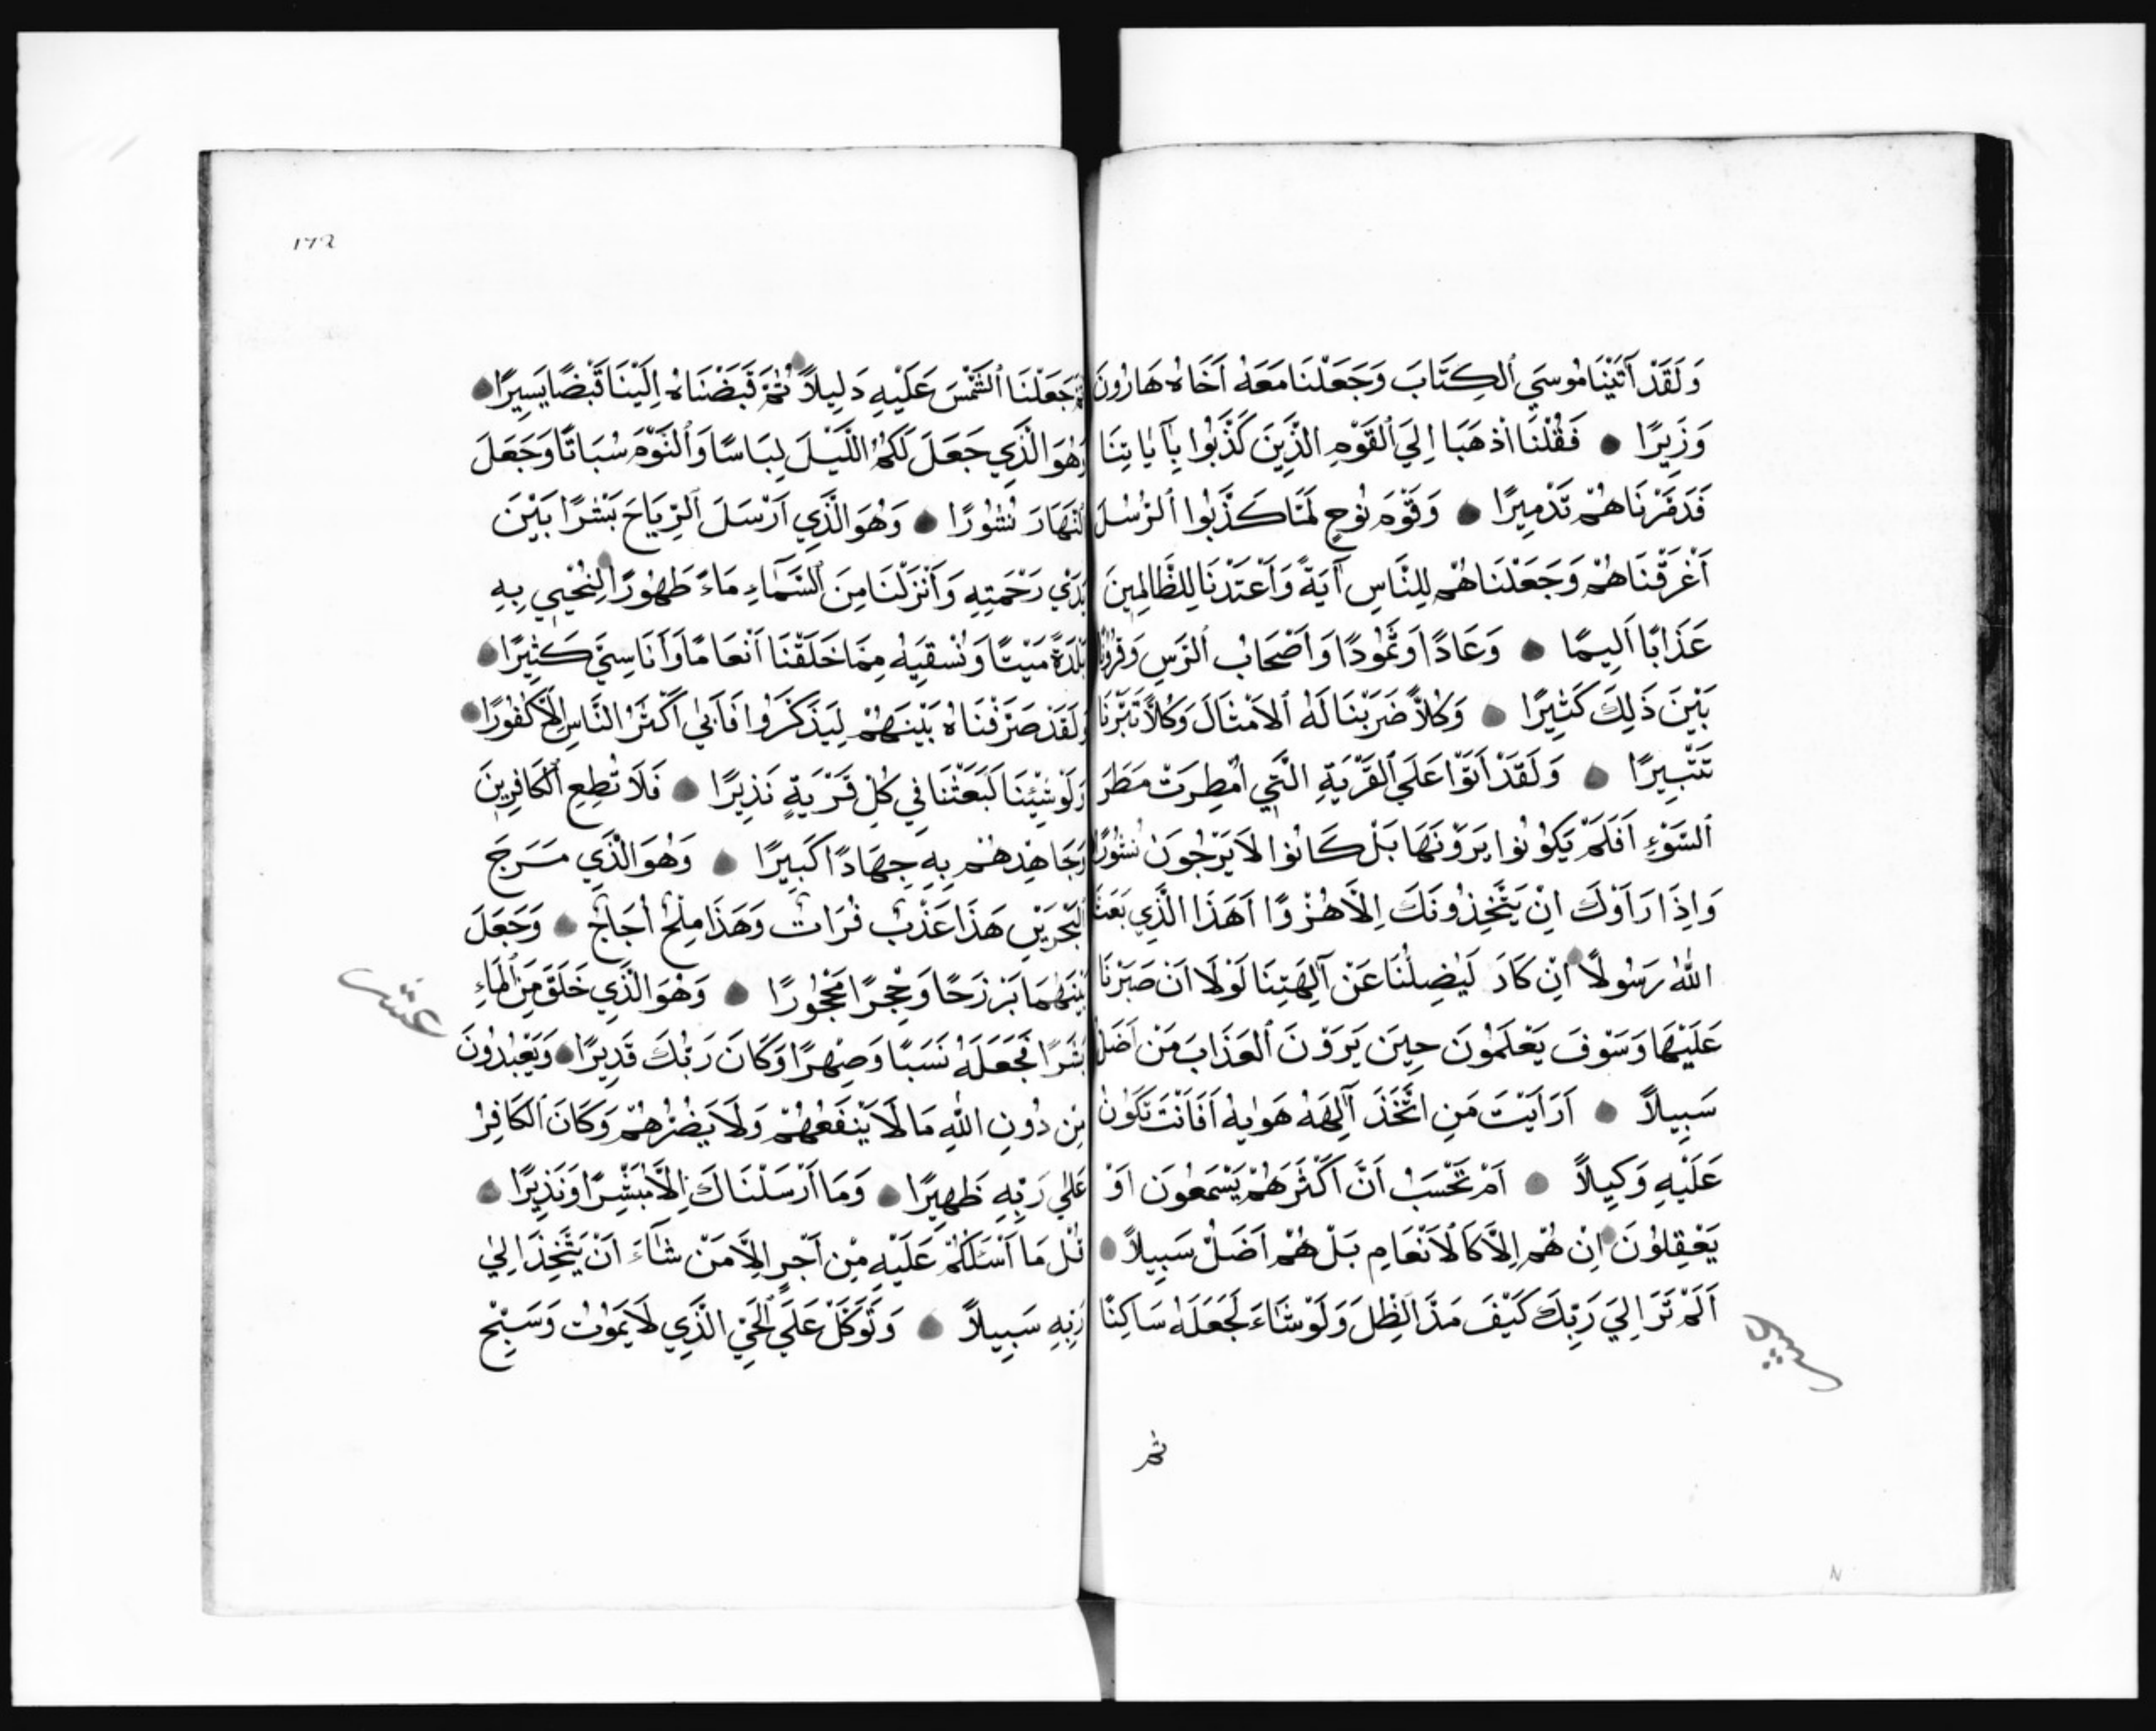 وَلَقَدْ آتَيْنَا مُوسَي ٱلكِتَابَ وَجَعَلْنَا مَعَهُ اَخَاهُ هَارُونَ
وَزِيرًا ● فَقُلْنَا اذْهَبَا اِلَي ٱلقَوْمِ الَّذِينَ كَذَّبُوا بِآيَاتِنَا
فَدَمَّرْنَاهُمْ تَدْمِيرًا ● وَقَوْمَ نُوحٍ لَمَّا كَذَّبُوا ٱلرُّسُلَ
اَغْرَقْنَاهُمْ وَجَعَلْنَاهُمْ لِلنَّاسِ آيَةً وَاَعْتَدْنَا لِلظَّالِمِينَ
عَذَابًا اَلِيمًا ● وَعَادًا وَثَمُودًا وَاَصْحَابَ ٱلرَّسِ وَقُرُونًا
بَيْنَ ذَلِكَ كَثِيرًا ● وَكُلاًّ ضَرَبْنَا لَهُ ٱلاَمْثَالَ وَكُلاًّ تَبَّرْنَا
تَتْبِيرًا ● وَلَقَدْ اَتَوْا عَلَي ٱلقَرْيَةِ الَّتِي اُمْطِرَتْ مَطَرَ
ٱلسَّوْءِ اَفَلَمْ يَكُونُوا يَرَوْنَهَا بَلْ كَانُوا لاَ يَرْجُونَ نُشُورًا
وَاِذَا رَاَوْكَ اِنْ يَتَّخِذُونَكَ اِلاَّ هُزُوًا اَهَذَا الَّذِي بَعَثَ
اللّٰهُ رَسُولاً ● اِنْ كَادَ لَيُضِلُّنَا عَنْ آلِهَتِنَا لَوْلاَ اَنْ صَبَرْنَا
عَلَيْهَا وَسَوْفَ يَعْلَمُونَ حِينَ يَرَوْنَ ٱلعَذَابَ مَنْ اَضَلُّ
سَبِيلاً ● اَرَاَيْتَ مَنِ اتَّخَذَ اِلٰهَهُ هَوٰيهُ اَفَاَنْتَ تَكُونُ
عَلَيْهِ وَكِيلاً ● اَمْ تَحْسَبُ اَنَّ اَكْثَرَهُمْ يَسْمَعُونَ اَوْ
يَعْقِلُونَ ● اِنْ هُمْ اِلاَّ كَالاَنْعَامِ بَلْ هُمْ اَضَلُّ سَبِيلاً ●
اَلَمْ تَرَ اِلَي رَبِّكَ كَيْفَ مَدَّ الظِّلَ وَلَوْ شَاءَ لَجَعَلَهُ سَاكِنًا
ثم
١٧٢
ثُمَّ جَعَلْنَا ٱلشَّمْسَ عَلَيْهِ دَلِيلاً ● ثُمَّ قَبَضْنَاهُ اِلَيْنَا قَبْضًا يَسِيرًا ●
وَهُوَ الَّذِي جَعَلَ لَكُمُ اللَّيْلَ لِبَاسًا وَٱلنَّوْمَ سُبَاتًا وَجَعَلَ
ٱلنَّهَارَ نُشُورًا ● وَهُوَ الَّذِي اَرْسَلَ ٱلرِّيَاحَ بَشْرًا بَيْنَ
يَدَيْ رَحْمَتِهِ وَاَنْزَلْنَا مِنَ ٱلسَّمَاءِ مَاءً طَهُورًا ● لِنُحْيِيَ بِهِ
بَلْدَةً مَيْتًا وَنُسْقِيَهُ مِمَّا خَلَقْنَا اَنْعَامًا وَاَنَاسِيَّ كَثِيرًا ●
وَلَقَدْ صَرَّفْنَاهُ بَيْنَهُمْ لِيَذَّكَّرُوا فَاَبَي اَكْثَرُ النَّاسِ اِلاَّ كُفُورًا ●
وَلَوْ شِئْنَا لَبَعَثْنَا فِي كُلِّ قَرْيَةٍ نَذِيرًا ● فَلاَ تُطِعِ ٱلكَافِرِينَ
وَجَاهِدْهُمْ بِهِ جِهَادًا كَبِيرًا ● وَهُوَ الَّذِي مَرَجَ
ٱلبَحْرَيْنِ هَذَا عَذْبٌ فُرَاتٌ وَهَذَا مِلْحٌ اُجَاجٌ ● وَجَعَلَ
بَيْنَهُمَا بَرْزَخًا وَحِجْرًا مَحْجُورًا ● وَهُوَ الَّذِي خَلَقَ مِنَ ٱلمَاءِ
عشر
بَشَرًا فَجَعَلَهُ نَسَبًا وَصِهْرًا وَكَانَ رَبُّكَ قَدِيرًا ● وَيَعْبُدُونَ
مِنْ دُونِ اللّٰهِ مَا لَا يَنْفَعُهُمْ وَلاَ يَضُرُّهُمْ وَكَانَ ٱلكَافِرُ
عَلٰي رَبِّهِ ظَهِيرًا ● وَمَا اَرْسَلْنَاكَ اِلاَّ مُبَشِّرًا وَنَذِيرًا ●
قُلْ مَا اَسْئَلُكُمْ عَلَيْهِ مِنْ اَجْرٍ اِلاَّ مَنْ شَاءَ اَنْ يَتَّخِذَ اِلٰي
رَبِّهِ سَبِيلاً ● وَتَوَكَّلْ عَلَي ٱلحَيِّ الَّذِي لاَ يَمُوتُ وَسَبِّحْ